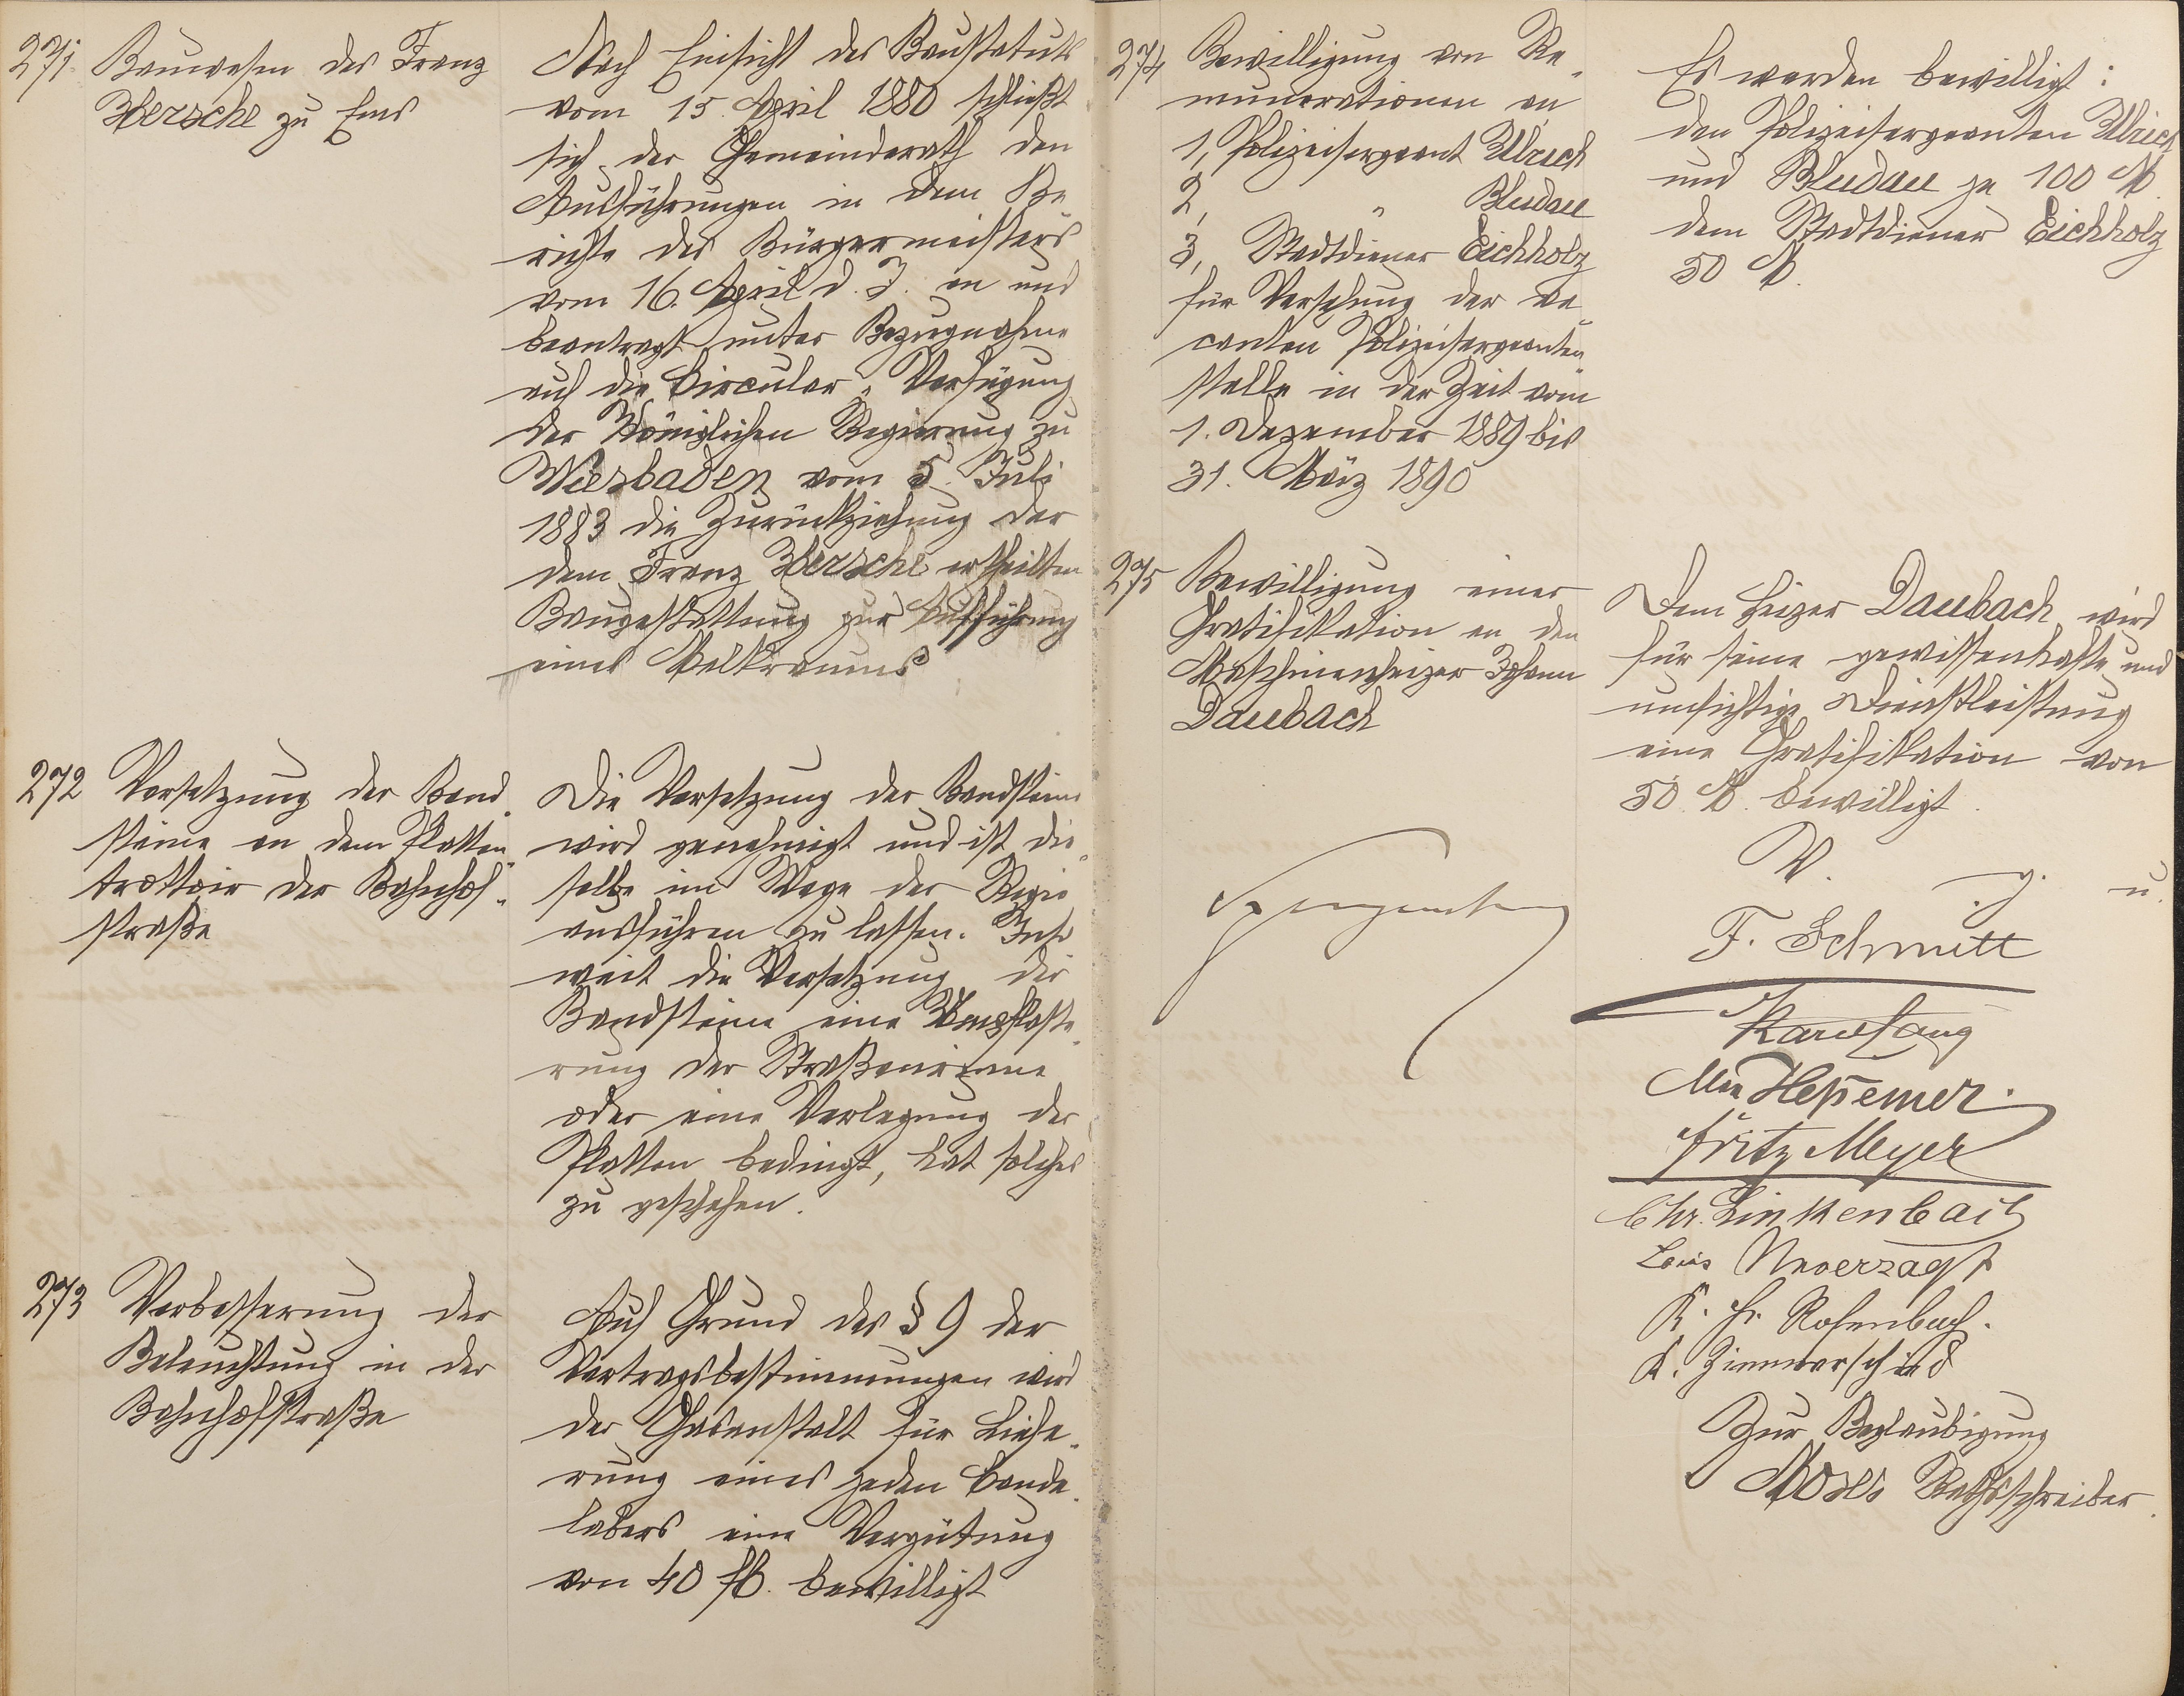 271. Bauwesen des Franz
Hersche zu Ems
Nach Einsicht des Baustatuts
vom 15. April 1880 schließt
sich der Gemeinderath den
Ausführungen in dem Be-
richte des Bürgermeisters
vom 16. April d. J. an und
beantragt unter Bezugnahme
auf die Circular-Verfügung
der Königlichen Regierung zu
Wiesbaden vom 5. Juli
1883 die Zurückziehung der
dem Franz Hersche ertheilten
Baugestattung zur Aufführung
eines
272 Versetzung der Band-
steine an dem Platten-
trottoir der Bahnhof-
straße
Die Versetzung der Bandsteine
wird genehmigt und ist die-
selbe im Wege der Regie
ausführen zu lassen. Inso-
weit die Versetzung der
Bandsteine eine Umpflaste-
rung der Straßenrinne
oder eine Verlegung der
Platten bedingt, hat solches
zu geschehen.
273 Verbesserung der
Beleuchtung in der
Bahnhofstraße
Auf Grund des § 9 der
Vertragsbestimmungen wird
der Gasanstalt für Liefe-
rung eines jeden Cande-
labers eine Vergütung
von 40 M. bewilligt
274 Bewilligung von Re-
munerationen an
1, Polizeisergeant Ulrich
2, " Bludau
3, Stadtdiener Eichholz
für Versehung der va-
canten Polizeisergeanten
stelle in der Zeit vom
1. Dezember 1889 bis
31. März 1890
Es werden bewilligt:
den Polizeisergeanten Ulrich
und Bludau je 100 M.
dem Stadtdiener Eichholz
50 M.
275 Bewilligung einer
Gratifikation an den
Maschinenheizer Johann
Daubach
Dem Heizer Daubach wird
für seine gewissenhafte und
umsichtige Dienstleistung
eine Gratifikation von
50 M. bewilligt.
V. g. u.
F. Schmitt
Karl Lang
Hessemer.
Fritz Meyer
Chr. Linkenbach
Louis Unverzagt
K. Fr. Rosenbach.
K. Zimmerschied
Zur Beglaubigung
Moses Rathsschreiber.